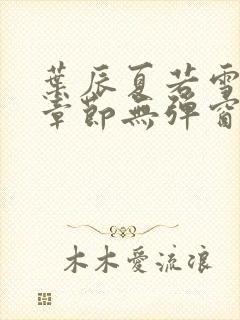 葉辰夏若雪
章節無彈窗
木木愛流浪